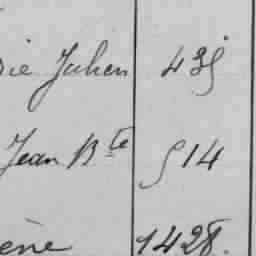 die Julien 435
Jean Bte 514
ène 1428.